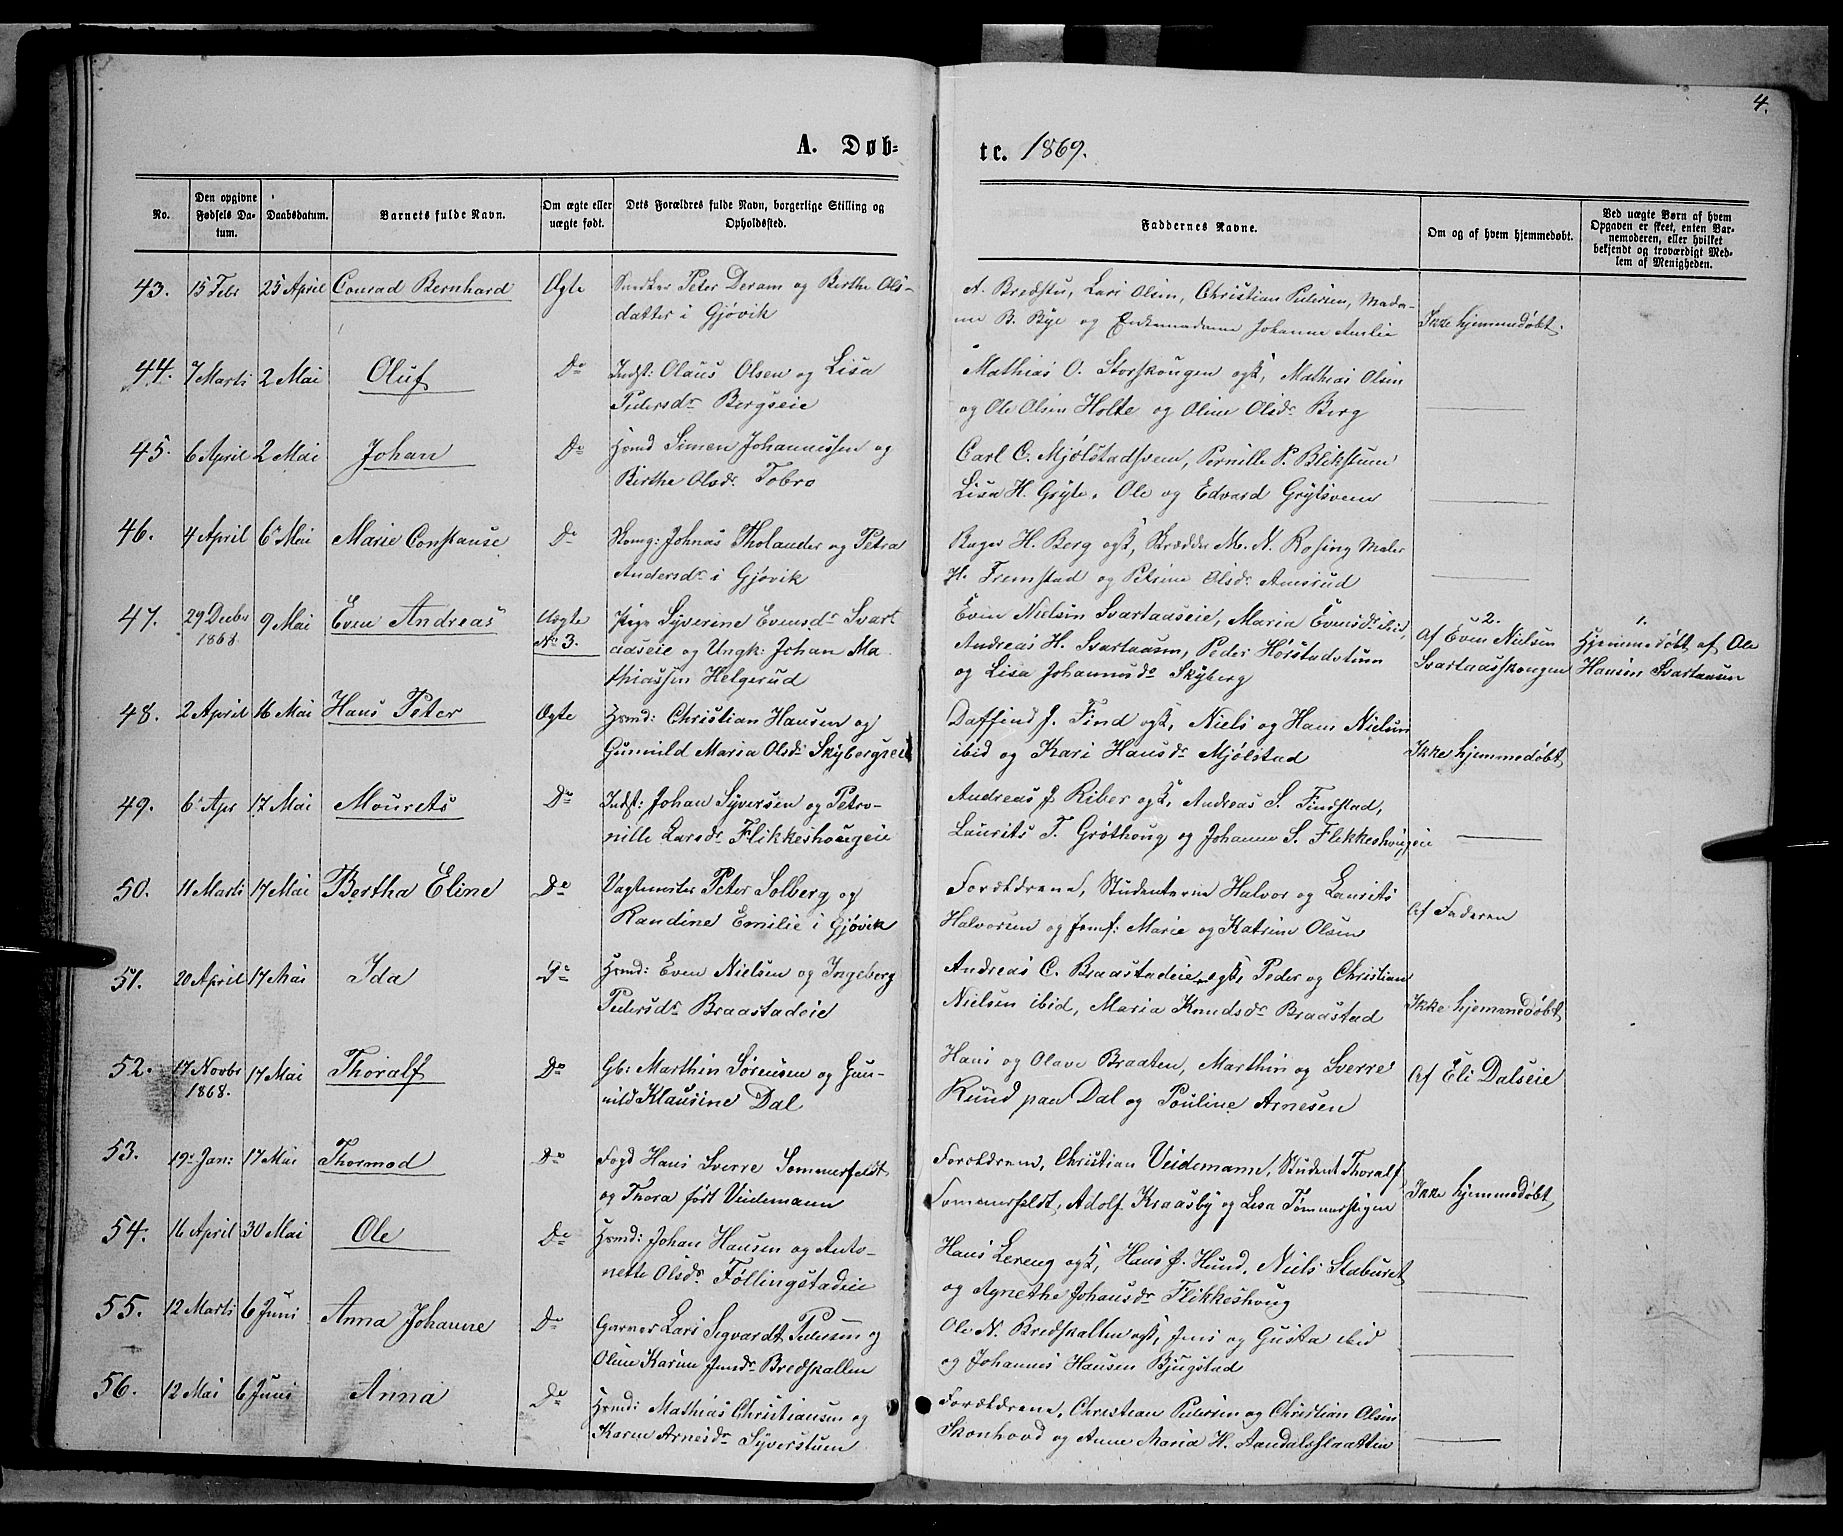 4.
A. Døb=
te. 1869.
No.
Den opgivne
Fødsels Da-
tum.
Daabsdatum.
Barnets fulde Navn.
Om ægte eller
uægte født.
Dets Forældres fulde Navn, borgerlige Stilling og
Opholdssted.
Faddernes Navne.
Om og af hvem hjemmedøbt.
Ved uægte Børn af hvem
Opgaven er skeet, enten Bar-
nemoderen, eller hvilket
bekjendt og troværdigt Med-
lem af Menigheden.
43. 15 Febr 25 April Conrad Bernhard Ægte Snedker Peter Deram og Berthe Ols-
datter i Gjøvik
A. Bredstu, Lars Olsen, Christian Pedersen, Mada-
me B. Bye og Enkemadame Johanne Amlie
Ikke hjemmedøbt.
44. 7 Marts 2 Mai Oluf Do Indst: Olaus Olsen og Lisa
Pedersdr Bergseie
Mathias O. Storskougen ogk, Mathias Olsen
og Ole Olsen Holte og Oline Olsdr Berg
45. 6 April 2 Mai Johan Do Hsmd Simen Johannessen og
Birthe Olsdr. Tobro
Carl C. Mjølstadsveen, Pernille P. Blikstum
Lisa H. Gryte, Ole og Edvard Grytsveen
46. 4 April 6 Mai Marie Constanse Do Skomg: Johnas Tholander og Petra
Andersdr i Gjøvik
Bager H. Berg ogk, Skrædder M. N. Rosing Maler
H. Fremstad og Petrine Olsdr Amsrud
47. 29 Decbr
1868. 9 Mai Even Andreas Uægte
No 3. Pige Syverine Evensdr Svart
aaseie og Ungk: Johan Ma
thiassen Helgerud
Even Nielsen Svartaaseie, Maria Evensdr ibid,
Andreas H. Svartaasen, Peder Hørstadstuen
og Lisa Johannesdr Skyberg
2.
Af Even Nielsen
Svartaasskougen
1.
Hjemmedøbt af Ole
Hansen Svartaasen
48. 2 April 16 Mai Hans Peter Ægte Hsmd: Christian Hansen og
Gunnild Maria Olsdr Skybergseie
Daffind J. Find ogk, Niels og Hans Nielsen
ibid og Kari Hansdr Mjølstad
Ikke hjemmedøbt
49. 6 Apr 17 Mai Mourets Do Indst: Johan Syversen og Petro-
nille Larsdr Flikkeshougeie
Andreas J Riber ogk, Andreas S. Findstad,
Laurits T. Grøthoug og Johanne S. Flikkeshougeie
50. 11 Marts 17 Mai Bertha Eline Do Vagtmester Peter Solberg og
Randine Emilie i Gjøvik
Forældrene, Studenterne Halvor og Laurits
Halvorsen og Jomf: Marie og Katrine Olsen
Af Faderen
51. 20 April 17 Mai Ida Do Hsmd: Even Nielsen og Ingeborg
Pedersdr Braastadeie
Andreas C. Braastadeie ogk, Peder og Christian
Nielsen ibid, Maria Knudsdr Braastad
Ikke hjemmedøbt
52. 17 Novbr
1868. 17 Mai Thoralf Do Gb: Marthin Sørensen og Gun-
nild Klausine Dal
Hans og Olave Braaten, Marthin og Sverre
Rund paa Dal og Pouline Arnesen
Af Eli Dalseie
53. 19 Jan: 17 Mai Thormod Do Fogd Hans Sverre Sommerfeldt
og Thora født Veidemann
Forældrene, Christian Veidemann, Student Thoralf
Sommerfeldt, Adolf Kraasby og Lisa Tømmerstigen
Ikke hjemmedøbt
54. 16 April 30 Mai Ole Do Hsmd: Johan Hansen og Anto-
nette Olsdr Føllingstadeie
Hans Lereng ogk, Hans J. Hund, Niels Staburet
og Agnethe Johansdr Flikkeshoug
55. 12 Marts 6 Juni Anna Johanne Do Garver Lars Segvardt Pedersen og
Oline Karine Jensdr Bredskallen
Ole N. Bredskallen ogk, Jens og Gusta ibid
og Johannes Hansen Bjugstad
56. 12 Mai 6 Juni Anna Do Hsmd: Mathias Christiansen og
Karen Arnesdr Syverstuen
Forældrene, Christian Pedersen og Christian Olsen
Skonhovd og Anne Maria H. Aandalsslaatten